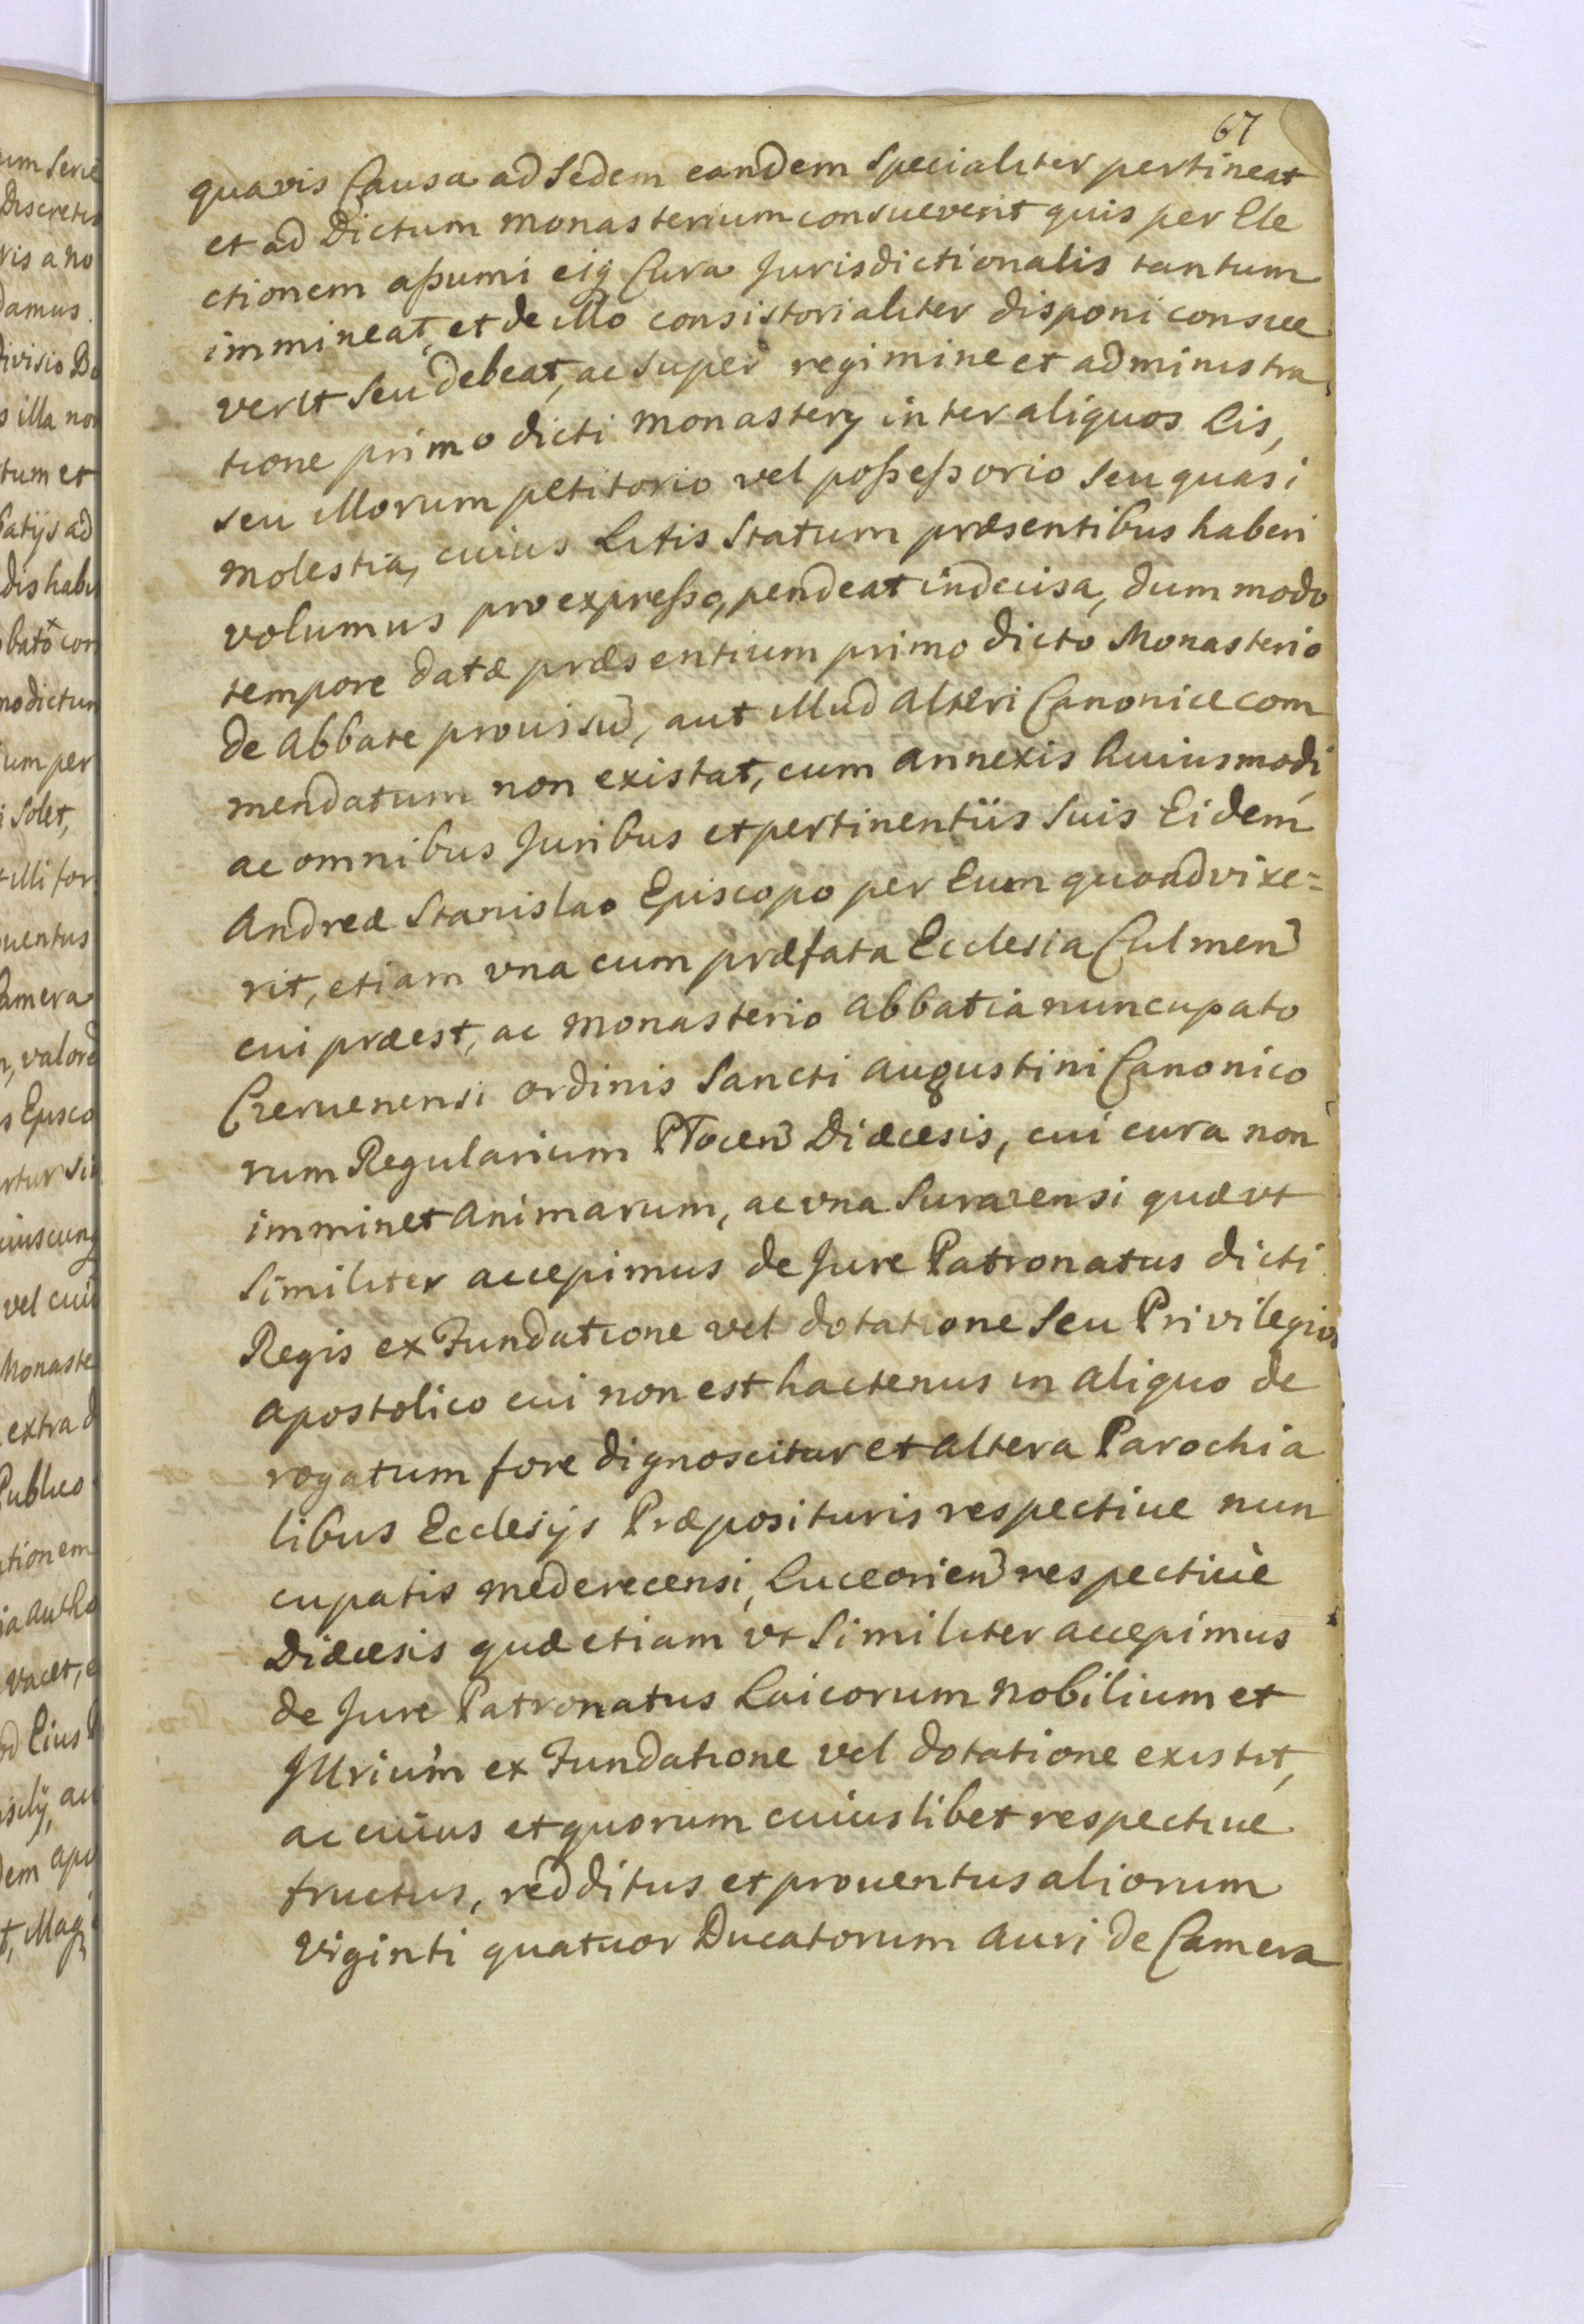 67
quavis Causa ad Sedem eandem Specialiter pertineat
et ad Dictum Monasterium consueverit quis per Ele
ctionem aßumi eiq Cura Jurisdictionalis tantum
immineat, et de illo consistorialiter disponi consue
verit seu debeat, ac super regimine et administra
tione primo dicti Monasterÿ inter aliquos Lis,
seu illorum petitorio vel poßeßorio seu quasi
molestia, cuius Litis Statum præsentibus haberi
volumus pro expreßo, pendeat indecisa, dum modo
tempore datæ præsentium primo dicto Monasterio
de Abbate provisũ, aut illud alteri Canonice com
mendatum non existat, cum annexis huiusmodi
ac omnibus Juribus et pertinentiis Suis Eidem
Andreæ Stanislao Episcopo per Eum quoad vixe=
rit, etiam vna cum præfata Ecclesia Culmen
cui præest, ac Monasterio Abbatia nuncupato
Czeruenensi ordinis Sancti Augustini Canonico
rum Regularium Płocen Diæcesis, cui cura non
imminet Animarum, ac vna Surazensi quæ vt
Similiter accepimus de Jure Patronatus dicti
Regis ex Fundatione vel dotatione Seu Privilegio
Apostolico cui non est hactenus in aliquo de
rogatum fore dignoscitur et altera Parochia
libus Ecclesijs Præposituris respective nun
cupatis Mederecensi, Luceorien respective
Diæcesis quæ etiam vt Similiter accepimus
de Jure Patronatus Laicorum Nobilium et
Illrium ex Fundatione vel dotatione existit,
ac cuius et quorum cuiuslibet respective
fructus, redditus et proventus aliorum
Viginti quatuor Ducatorum Auri de Camera